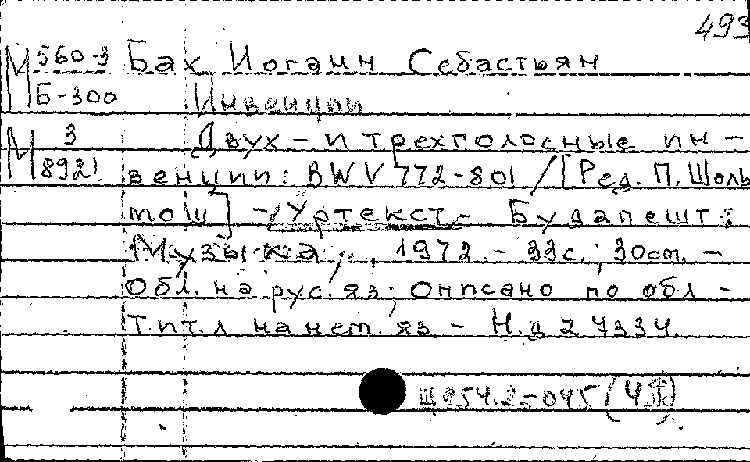 493
М 560-3 Бах Иоганн Себастьян
Б-300 Инвенции
М 3 Двух- и трехголосные ин-
892 венции: BWV 772-801 / [Ред. П. Шоль
тош] - Уртекст. - Будапешт:
Музыка, 1972. - 33 с.; 30 cm. -
Обл. на рус. яз; Описано по обл -
Тит. л на нем. яз - Н.д Z 4334.
Щ954.2-045 (4Я)